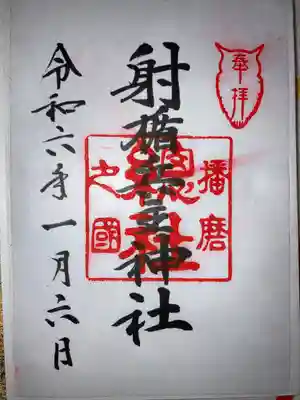 奉拝
射楯兵主神社
播磨
之國
総社
令和六年一月六日